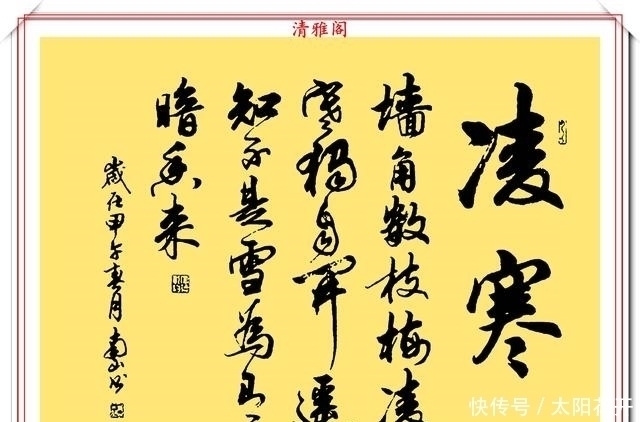 清雅阁
凌寒
墙角数枝梅凌
寒独自开遥
知不是雪为有
暗香来
岁在甲午春月南山书
快传号 / 太阳花开